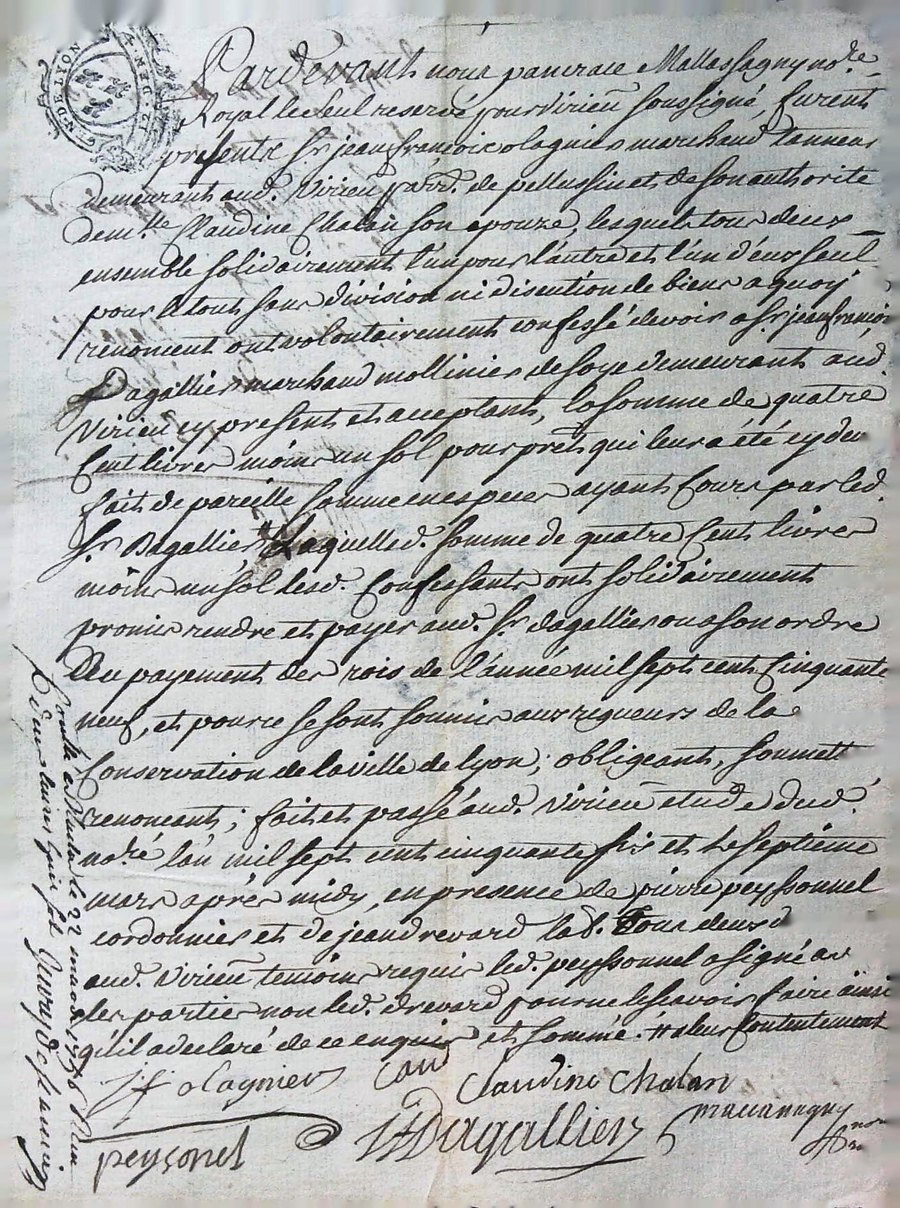 GEN. DE LYON
2. DEN. 4
Pardevant nous pancrace Mallassagny no.re
Royal le seul reservé pour Virieu soussigné, furent
presents Sr. jean françois olagnier marchand tanneur
demeurant aud. Virieu parr. de pellussin et de son authorité
dem.lle Claudine Chalan son epouze, lesquels tous deux
ensemble solidairement l'un pour l'autre et l'un d'eux seul
pour le tout sans division ni discution de biens a quoy
renoncent ont volontairement confessé devoir a Sr. jean françois
Dagallier marchand mollinier de soye demeurant aud.
Virieu cy present et acceptant, la somme de quatre
Cent livres moins un sol pour prets qui leur a été cy dev
fait de pareille somme en especes ayant Cours par led.
Sr. Dagallier # laquelle d. somme de quatre Cent livres
moins un sol lesd. Confessants ont solidairement
promis rendre et payer aud. Sr. dagallier ou a son ordre
Au payement des rois de l'année mil sept cent Cinquante
neuf, et pour ce se sont soumis aux rigueurs de la
Conservation de la ville de Lyon; obligeants, soumett
renoncants; fait et passé aud. Virieu etude dud.
no.re l'an mil sept cent cinquante six et le septieme
mars après midy, en presence de pierre peyssonnel
cordonnier et de jean drevard lab. Tous deux d
aud. Virieu temoins requis led. peyssonnel a signé av
les parties non led. drevard pour ne le scavoir faire ainsi
qu'il a declaré de ce enquis et sommé. # a leur Contentement
J f olagnier
Claudine Chalan
peysonel
JF Dagallier
Controllé a Pelussin le 22 mars 1756 Reçu